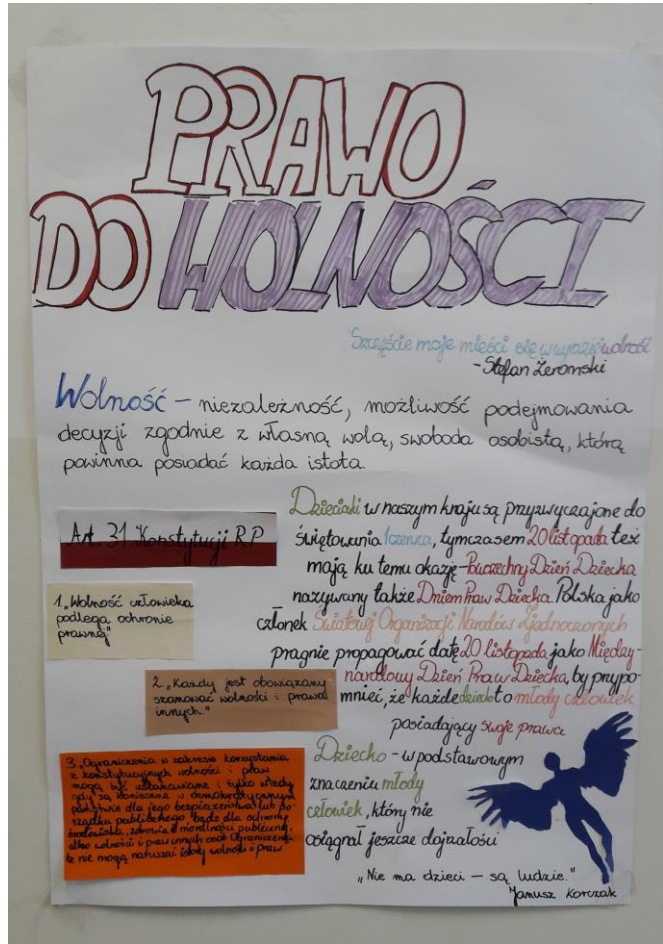 PRAWO
DO WOLNOŚCI
Szczęście moje mieści się w wyrazie wolność
- Stefan Żeromski
Wolność - niezależność, możliwość podejmowania
decyzji zgodnie z własną wolą, swoboda osobista, którą
powinna posiadać każda istota.
Art. 31 Konstytucji RP
1. „Wolność człowieka
podlega ochronie
prawnej"
2. „Każdy jest obowiązany
szanować wolności i prawa
innych."
3. „Ograniczenia w zakresie korzystania
z konstytucyjnych wolności i praw
mogą być ustanawiane i tylko wtedy
gdy są konieczne w demokratycznym
państwie dla jego bezpieczeństwa lub po-
rządku publicznego, bądź dla ochrony
środowiska, zdrowia i moralności publicznej,
albo wolności i praw innych osób Ograniczenia
te nie mogą naruszać istoty wolności i praw
Dzieciaki w naszym kraju są przyzwyczajone do
świętowania 1czerwca, tymczasem 20 listopada też
mają ku temu okazję - Powszechny Dzień Dziecka
nazywany także Dniem Praw Dziecka. Polska jako
członek Światowej Organizacji Narodów Zjednoczonych
pragnie propagować datę 20 listopada jako Między-
narodowy Dzień Praw Dziecka, by przypo-
mnieć, że każde dziecko to młody człowiek
posiadający swoje prawa
Dziecko - w podstawowym
znaczeniu młody
człowiek, który nie
osiągnął jeszcze dojrzałości
„Nie ma dzieci - są ludzie."
Janusz Korczak